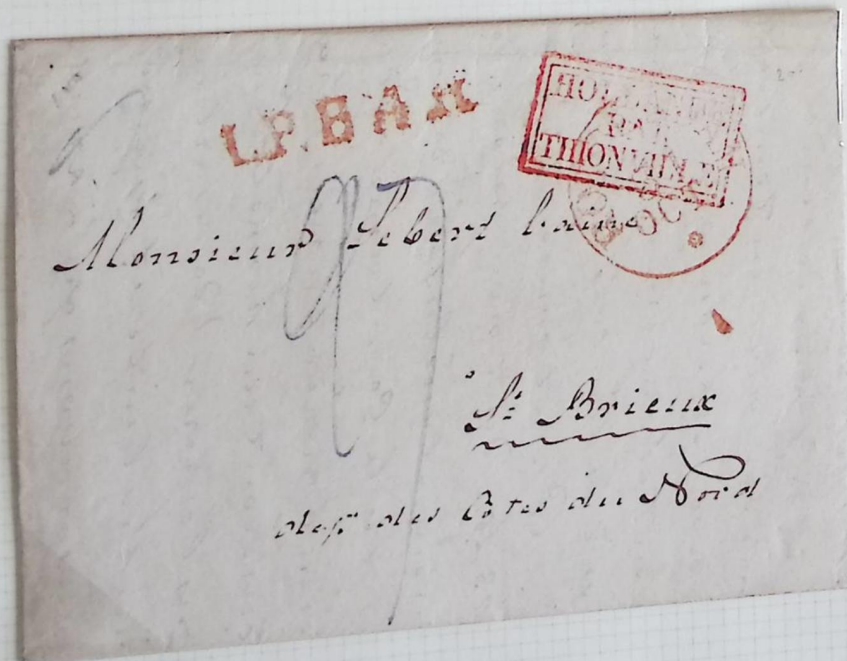 L.P.B.A.R
HOLLANDE
PAR
THIONVILLE
OCT
Monsieur Sebert l'aine
St Brieux
dept des Cotes du Nord